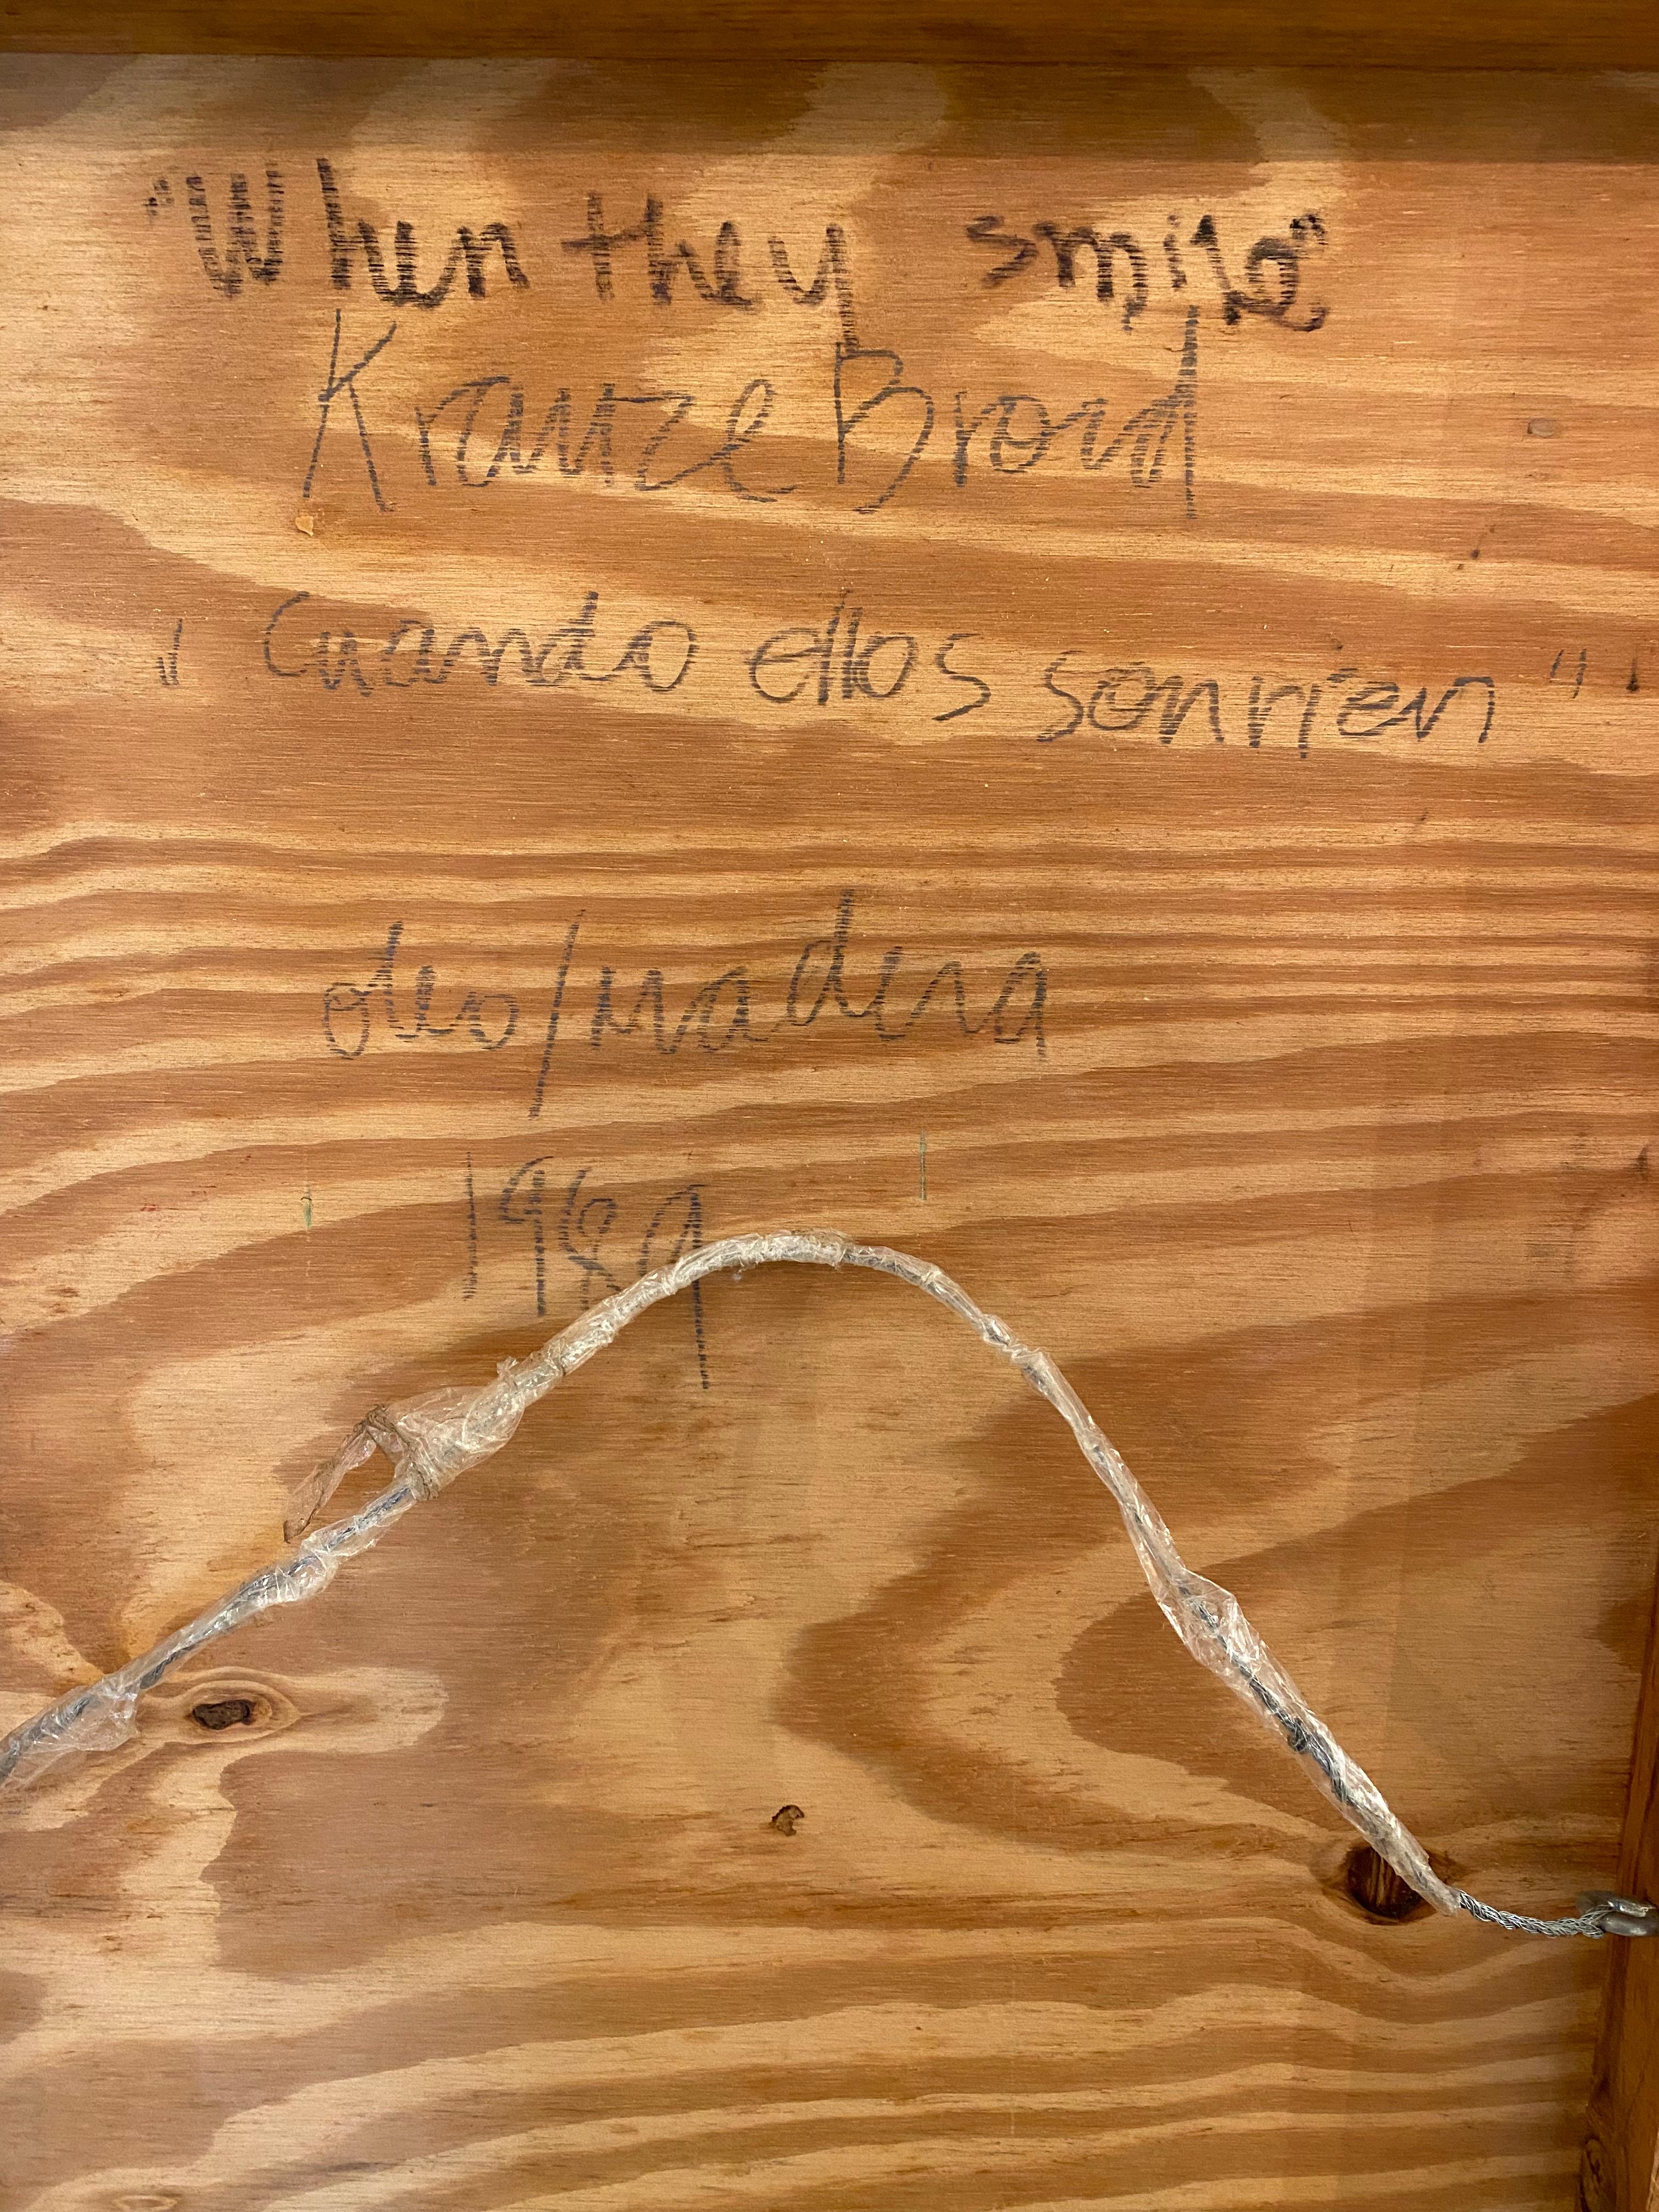 "When they smile"
Krauze Broid
"Cuando ellos sonrien"
oleo/madera
1989